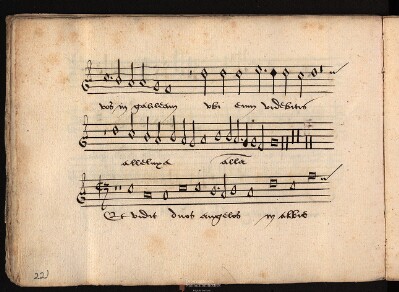 vos in galileam ubi eum videbitis
alleluya alla
Et vidit duos angelos in albis
22)